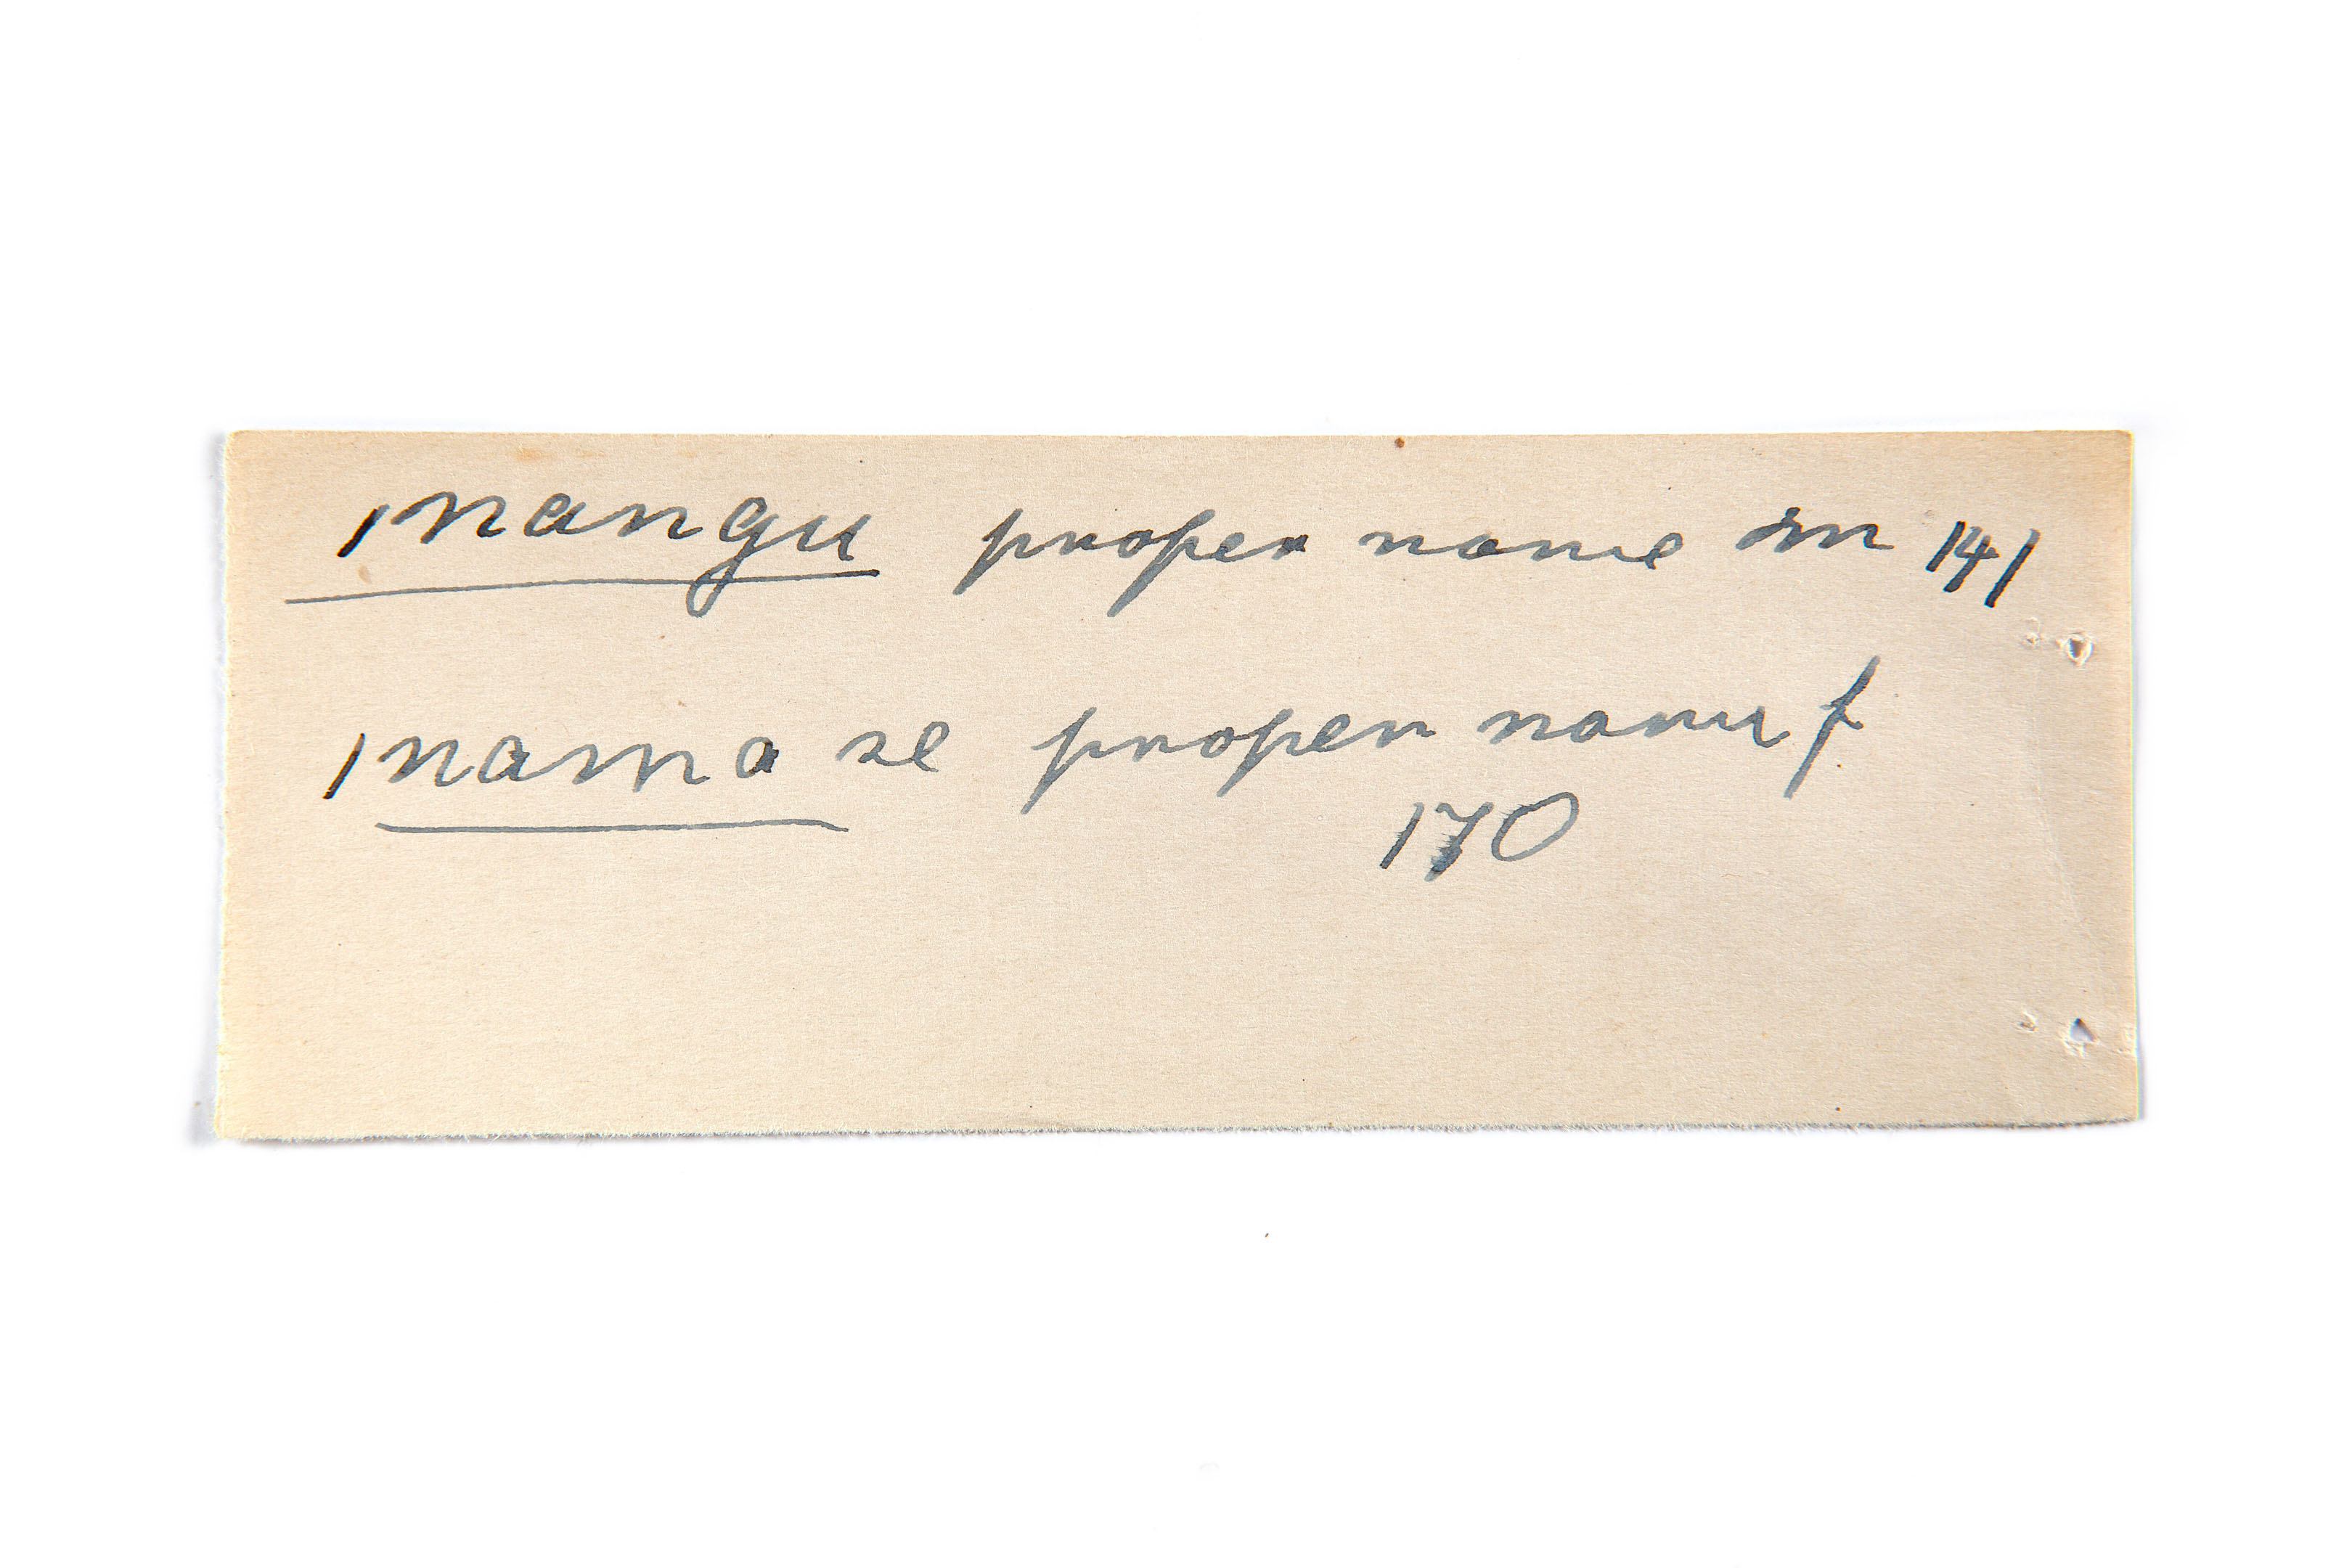 ınangu proper name m 141
ınama se proper name f
170